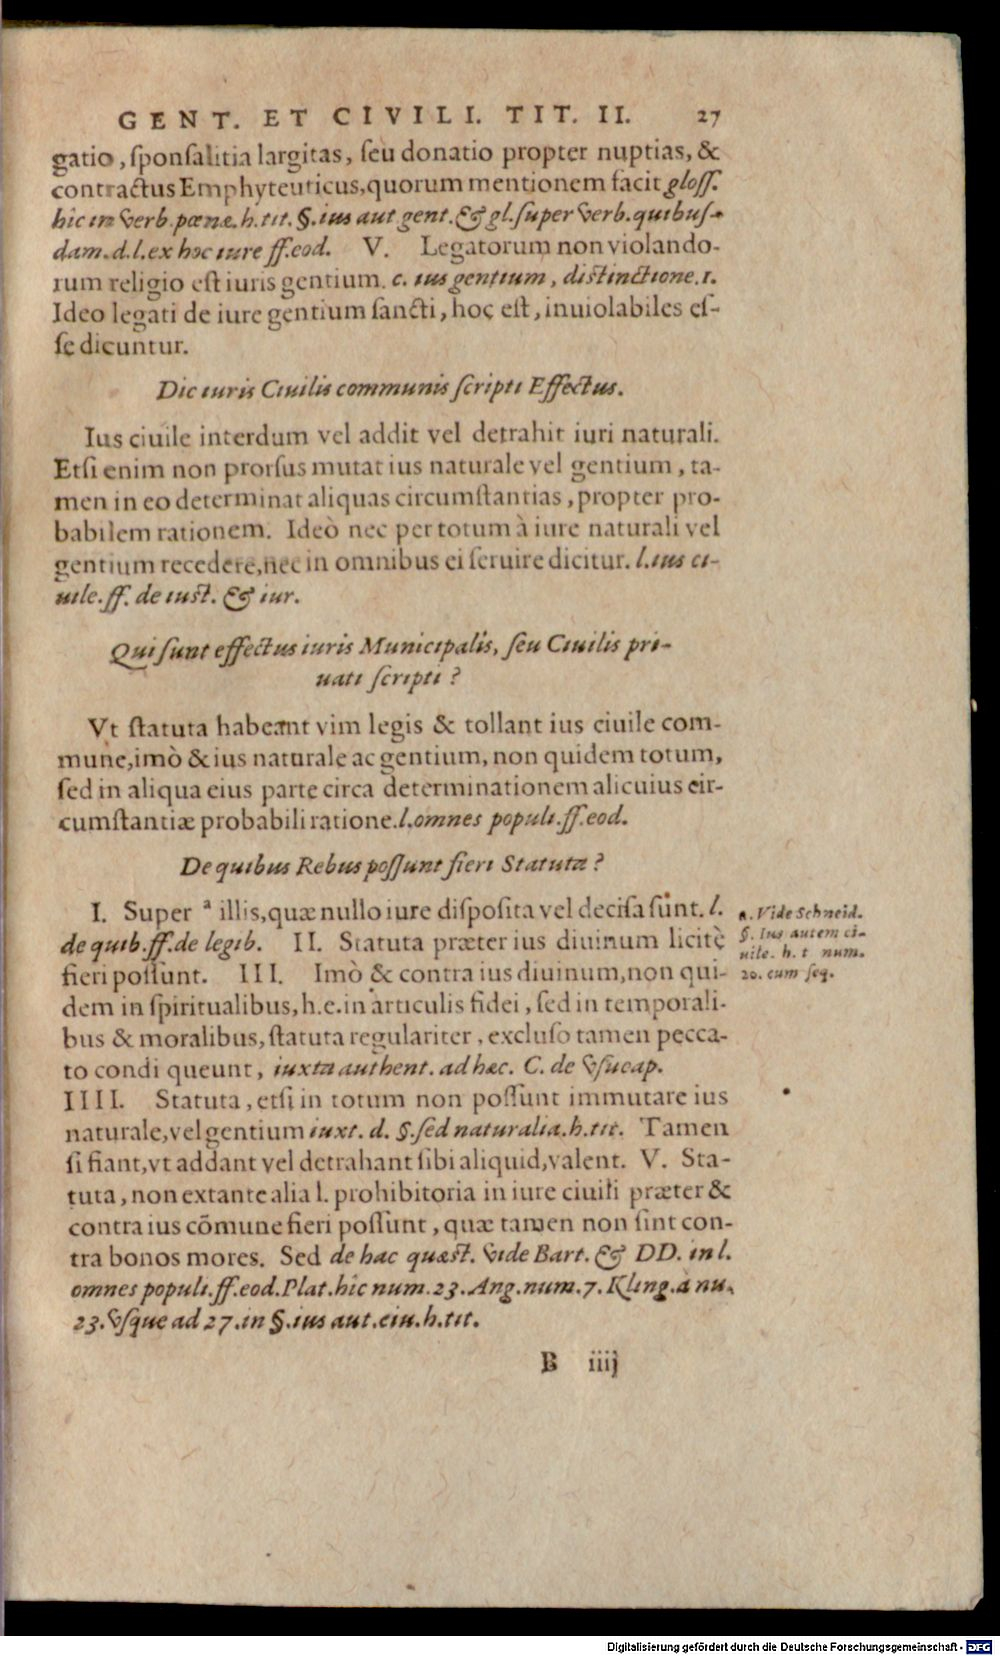 GENT. ET CIVILI. TIT. II. 27
gatio, ſponſalitia largitas, ſeu donatio propter nuptias, &
contractus Emphyteuticus, quorum mentionem facit gloſſ.
hic in verb. pœnæ. h. tit. §. ius aut gent. & gl. ſuper verb. quibuſ-
dam. d. l. ex hoc iure ff. eod. V. Legatorum non violando-
rum religio eſt iuris gentium. c. ius gentium, diſtinctione. 1.
Ideo legati de iure gentium ſancti, hoc eſt, inuiolabiles eſ-
ſe dicuntur.
Dic iuris Ciuilis communis ſcripti Effectus.
Ius ciuile interdum vel addit vel detrahit iuri naturali.
Etſi enim non prorſus mutat ius naturale vel gentium, ta-
men in eo determinat aliquas circumſtantias, propter pro-
babilem rationem. Ideò nec per totum à iure naturali vel
gentium recedere, nec in omnibus ei ſeruire dicitur. l. ius ci-
uile. ff. de iuſt. & iur.
Qui ſunt effectus iuris Municipalis, ſeu Ciuilis pri-
uati ſcripti?
Vt ſtatuta habeant vim legis & tollant ius ciuile com-
mune, imò & ius naturale ac gentium, non quidem totum,
ſed in aliqua eius parte circa determinationem alicuius cir-
cumſtantiæ probabili ratione. l. omnes populi. ff. eod.
De quibus Rebus poſſunt fieri Statuta?
I. Super ᵃ illis, quæ nullo iure diſpoſita vel deciſa ſunt. l.
de quib. ff. de legib. II. Statuta præter ius diuinum licitè
fieri poſſunt. III. Imò & contra ius diuinum, non qui-
dem in ſpiritualibus, h. e. in articulis fidei, ſed in temporali-
bus & moralibus, ſtatuta regulariter, excluſo tamen pecca-
to condi queunt, iuxta authent. ad hæc. C. de vſucap.
IIII. Statuta, etſi in totum non poſſunt immutare ius
naturale, vel gentium iuxt. d. §. ſed naturalia. h. tit. Tamen
ſi fiant, vt addant vel detrahant ſibi aliquid, valent. V. Sta-
tuta, non extante alia l. prohibitoria in iure ciuili præter &
contra ius cõmune fieri poſſunt, quæ tamen non ſint con-
tra bonos mores. Sed de hac quæſt. vide Bart. & DD. in l.
omnes populi. ff. eod. Plat. hic num. 23. Ang. num. 7. Kling. à nu.
23. vſque ad 27. in §. ius aut. ciu. h. tit.
a. Vide Schneid.
§. Ius autem ci-
uile. h. t num.
20. cum ſeq.
B iiij
Digitalisierung gefördert durch die Deutsche Forschungsgemeinschaft - DFG